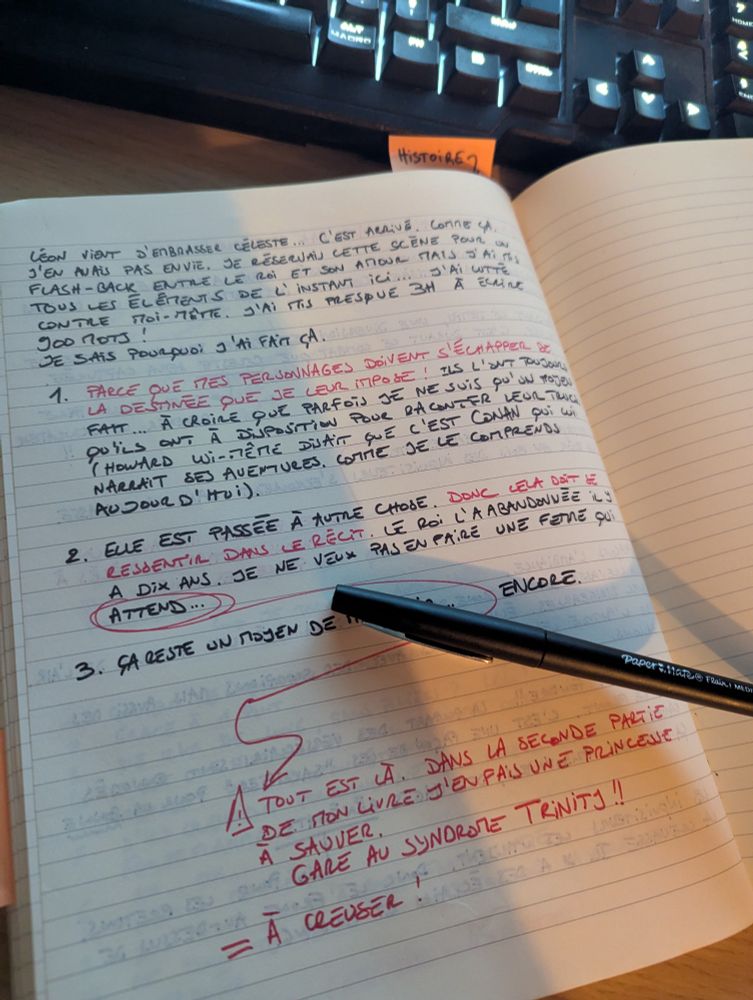 HISTOIRE
LÉON VIENT D'EMBRASSER CÉLESTE... C'EST ARRIVÉ. COMME ÇA.
J'EN AVAIS PAS ENVIE. JE RÉSERVAIS CETTE SCÈNE POUR UN
FLASH-BACK ENTRE LE ROI ET SON AMOUR MAIS J'AI MIS
TOUS LES ÉLÉMENTS DE L'INSTANT ICI... J'AI LUTTÉ
CONTRE MOI-MÊME. J'AI MIS PRESQUE 3H À ÉCRIRE
900 MOTS !
JE SAIS POURQUOI J'AI FAIT ÇA.
1. PARCE QUE MES PERSONNAGES DOIVENT S'ÉCHAPPER DE
LA DESTINÉE QUE JE LEUR IMPOSE ! ILS L'ONT TOUJOURS
FAIT... À CROIRE QUE PARFOIS JE NE SUIS QU'UN MOYEN
QU'ILS ONT À DISPOSITION POUR RACONTER LEUR TRUC !!
(HOWARD LUI-MÊME DISAIT QUE C'EST CONAN QUI LUI
NARRAIT SES AVENTURES. COMME JE LE COMPRENDS
AUJOURD'HUI).
2. ELLE EST PASSÉE À AUTRE CHOSE. DONC CELA DOIT SE
RESSENTIR DANS LE RÉCIT. LE ROI L'A ABANDONNÉE IL Y
A DIX ANS. JE NE VEUX PAS EN FAIRE UNE FEMME QUI
ATTEND...
3. ÇA RESTE UN MOYEN DE ... ENCORE.
⚠ TOUT EST LÀ. DANS LA SECONDE PARTIE
DE MON LIVRE J'EN FAIS UNE PRINCESSE
À SAUVER.
GARE AU SYNDROME TRINITY !!
= À CREUSER !
Paper:Mate® Flair